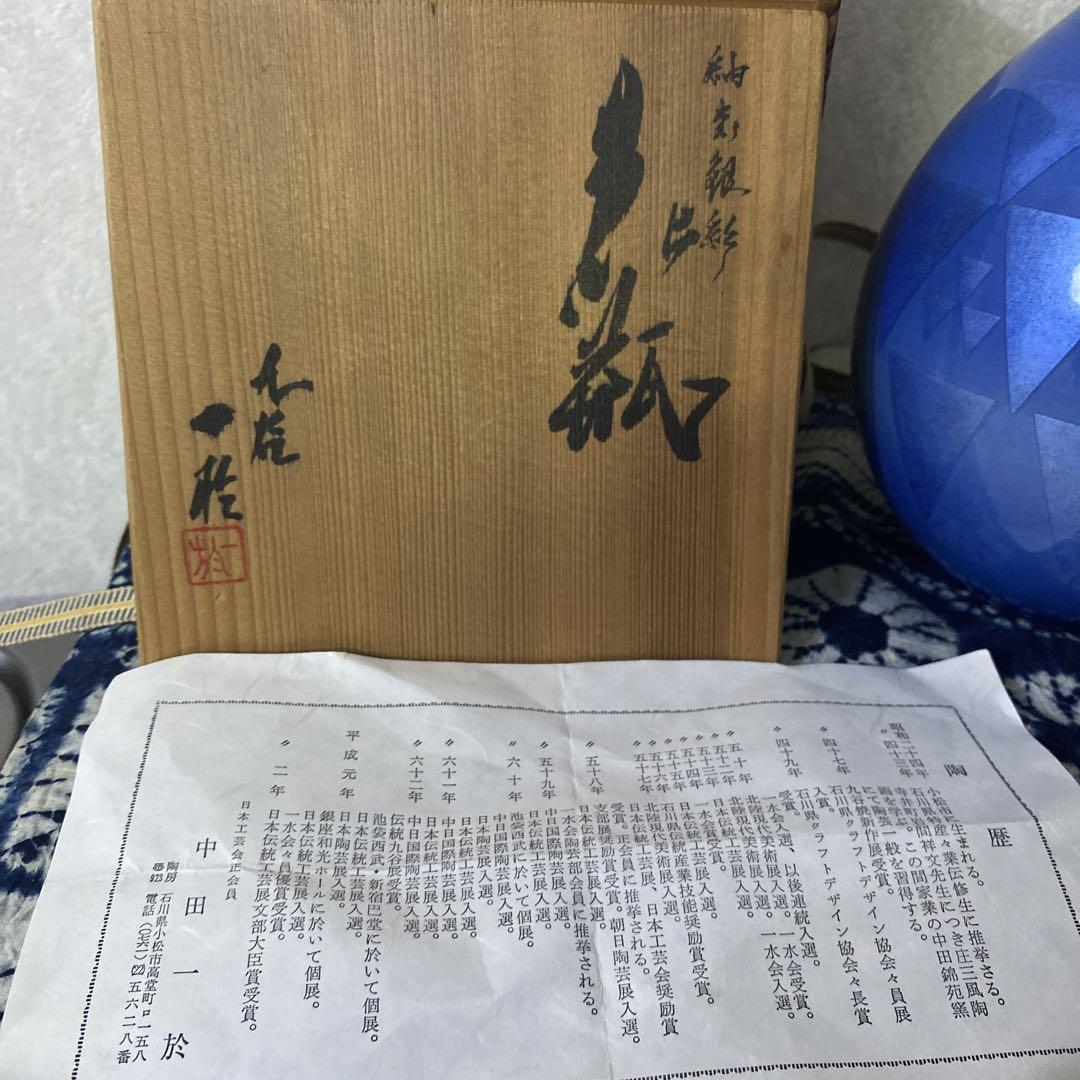 釉裏銀彩
花瓶
九谷
一於
陶歴
昭和二十四年 小松市に生まれる。
〃四十三年 石川県九谷業々伝修生に推挙さる。
画を学び陶芸一般を習得する。
〃四十七年 九谷焼新作展受賞。
石川県クラフトデザイン協会々員展
入賞。石川県クラフトデザイン協会々長賞
受賞。
〃四十九年 一水会入選、以後連続入選。
〃五十年 北陸現代美術展入選。一水会受賞。
〃五十二年 北陸現代美術展入選。一水会入選。
〃五十三年 一水会賞受賞。
〃五十四年 日本伝統工芸展入選。
〃五十五年 石川県伝統産業技能奨励賞受賞。
〃五十六年 北陸現代美術展入選。
〃五十七年 日本伝統工芸展、日本工芸会奨励賞
受賞。正会員に推挙される。
〃五十八年 支部展奨励賞受賞。朝日陶芸展入選。
日本伝統工芸展入選。
一水会陶芸部会員に推挙される。
〃五十九年 中日国際陶芸展入選。
日本伝統工芸展入選。
〃六十年 池袋西武に於いて個展。
日本陶芸展入選。
日本伝統工芸展入選。
〃六十一年 中日国際陶芸展入選。
日本伝統工芸展入選。
〃六十二年 中日国際陶芸展入選。
伝統九谷展受賞。
池袋西武・新宿巴堂に於いて個展。
日本伝統工芸展入選。
平成元年 日本陶芸展入選。
銀座和光ホールに於いて個展。
日本伝統工芸展入選。
〃二年 一水会々員優賞受賞。
日本伝統工芸展支部大臣賞受賞。
日本工芸会正会員
中田一於
陶房 石川県小松市高堂町ロ一五八
〒923 電話(〇七六一)(22)五六二八番